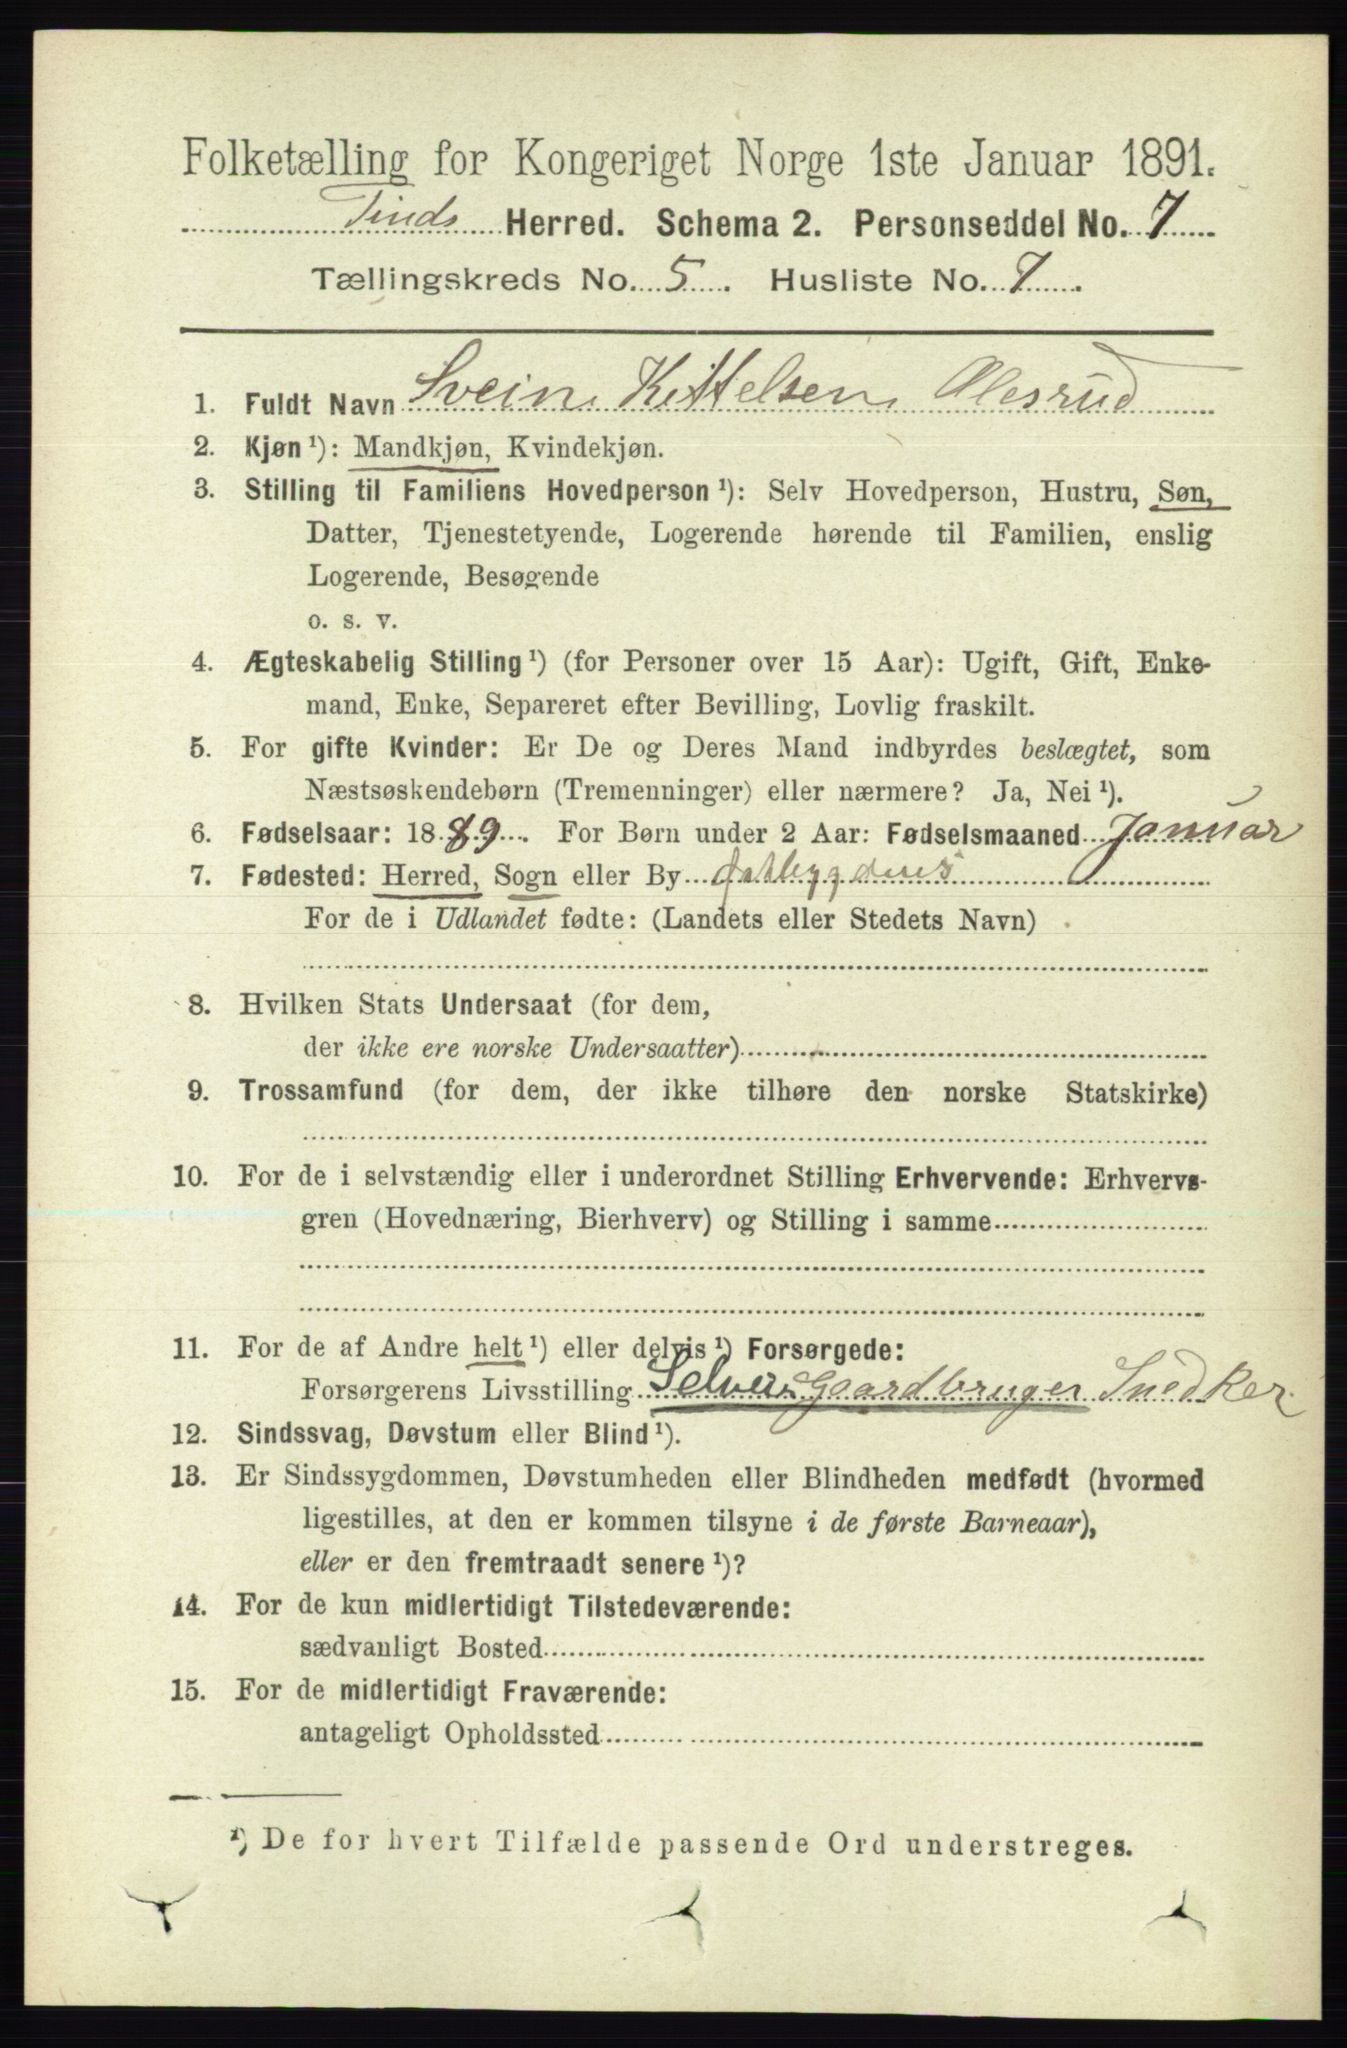 Folketælling for Kongeriget Norge 1ste Januar 1891.
Tinds Herred. Schema 2. Personseddel No. 7
Tællingskreds No. 5. Husliste No. 7.
1. Fuldt Navn Svein Kittelsen Olesrud
2. Kjøn ¹): Mandkjøn, Kvindekjøn.
3. Stilling til Familiens Hovedperson ¹): Selv Hovedperson, Hustru, Søn,
Datter, Tjenestetyende, Logerende hørende til Familien, enslig
Logerende, Besøgende
o. s. v.
4. Ægteskabelig Stilling ¹) (for Personer over 15 Aar): Ugift, Gift, Enke-
mand, Enke, Separeret efter Bevilling, Lovlig fraskilt.
5. For gifte Kvinder: Er De og Deres Mand indbyrdes beslægtet, som
Næstsøskendebørn (Tremenninger) eller nærmere? Ja, Nei ¹).
6. Fødselsaar: 1889. For Børn under 2 Aar: Fødselsmaaned Januar
7. Fødested: Herred, Sogn eller By
For de i Udlandet fødte: (Landets eller Stedets Navn)
8. Hvilken Stats Undersaat (for dem,
der ikke ere norske Undersaatter)
9. Trossamfund (for dem, der ikke tilhøre den norske Statskirke)
10. For de i selvstændig eller i underordnet Stilling Erhvervende: Erhvervs-
gren (Hovednæring, Bierhverv) og Stilling i samme
11. For de af Andre helt ¹) eller delvis ¹) Forsørgede:
Forsørgerens Livsstilling Selveier Gaardbruger Snedker
12. Sindssvag, Døvstum eller Blind ¹).
13. Er Sindssygdommen, Døvstumheden eller Blindheden medfødt (hvormed
ligestilles, at den er kommen tilsyne i de første Barneaar),
eller er den fremtraadt senere ¹)?
14. For de kun midlertidigt Tilstedeværende:
sædvanligt Bosted
15. For de midlertidigt Fraværende:
antageligt Opholdssted
¹) De for hvert Tilfælde passende Ord understreges.